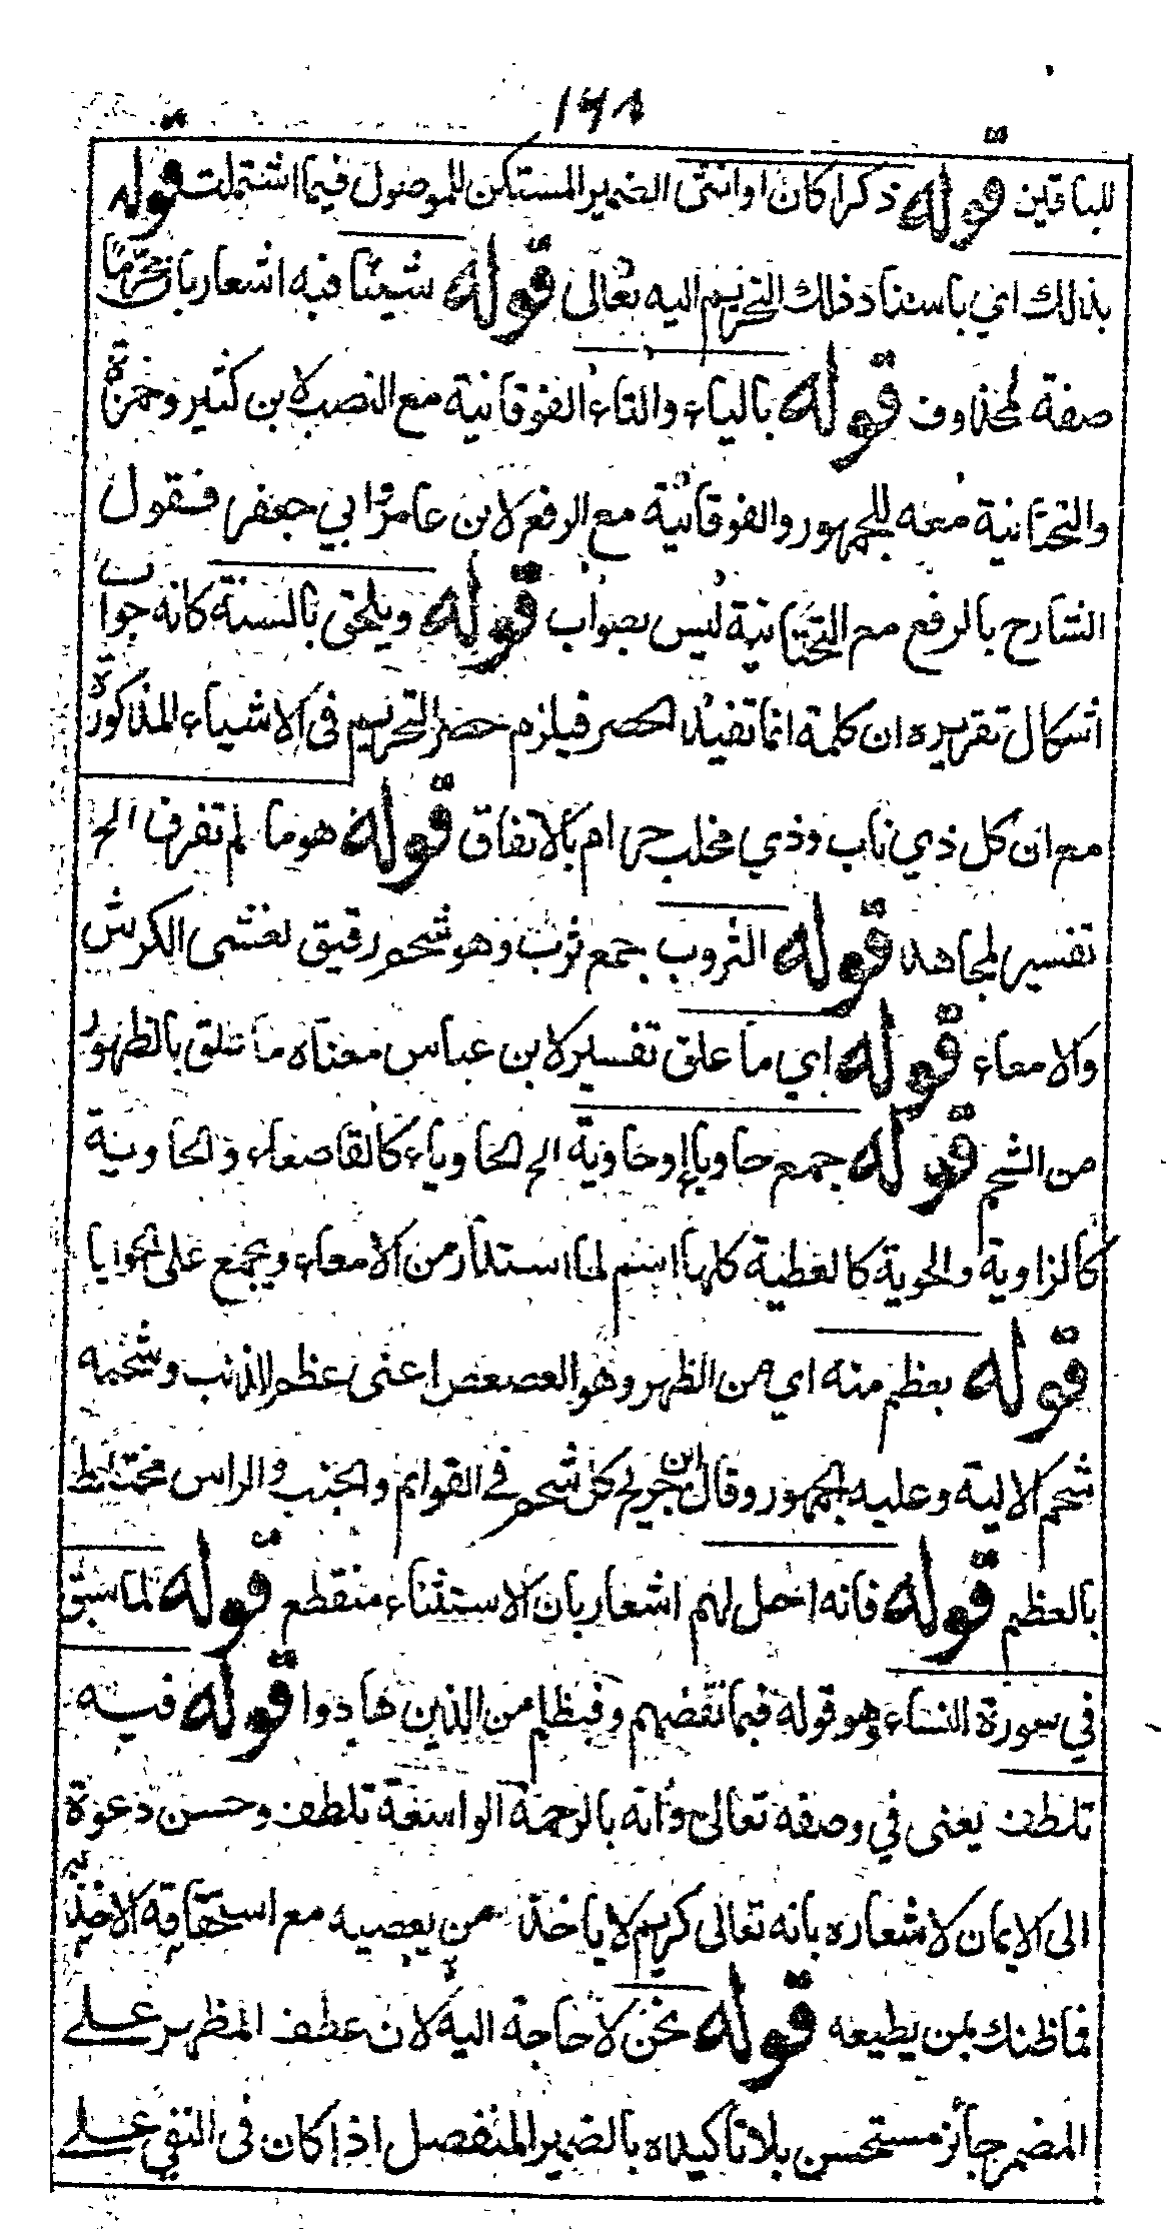 ١٦٨
للباقين قوله ذكرا كان او انثى الضمير المستكن للموصول فيما اشتملت قوله
بذلك اي باسناد ذلك التحريم اليه تعالى قوله شيئا فيه اشعار بان محرّما
صفة لمحذوف قوله بالياء والتاء الفوقانية مع النصب لابن كثير وحمزة
والتحتانية معه للجمهور والفوقانية مع الرفع لابن عامر وابي جعفر فقول
الشارح بالرفع مع التحتانية ليس بصواب قوله ويلحق بالسنة كانه جواب
اشكال تقريره ان كلمة انما تفيد الحصر فيلزم حصر التحريم فى الاشياء المذكورة
مع ان كل ذي ناب وذي مخلب حرام بالاتفاق قوله هو ما لم تفرف الخ
تفسير لمجاهد قوله الثروب جمع ثرب وهو شحم رقيق تغشى الكرش
والامعاء قوله اي ما علق تفسير لابن عباس معناه ما علق بالظهور
من الشحم قوله جمع حاوياء او حاوية الخ الحاوياء كالقاصعاء والحاوية
كالزاوية والحوية كالعطية كلها اسم لما استدار من الامعاء ويجمع على الحوايا
قوله بعظم منه اي من الظهر وهو العصعص اعنى عظم الذنب وشحمه
شحم الالية وعليه الجمهور وقال ابن جريج كل شحم في القوائم والجنب والراس مختلط
بالعظم قوله فانه احل لهم اشعار بان الاستثناء منقطع قوله لما سبق
في سورة النساء وهو قوله فبما نقضهم وفبظلم من الذين هادوا قوله فيه
تلطف يعنى في وصفه تعالى وانه بالرحمة الواسعة تلطف وحسن دعوة
الى الايمان لاشعاره بانه تعالى كريم لا ياخذ من يعصيه مع استحقاقه الاخذ
فما ظنك بمن يطيعه قوله نحن لا حاجة اليه لان عطف المظهر على
المضمر جائز مستحسن بلا تاكيده بالضمير المنفصل اذا كان فى النفي على